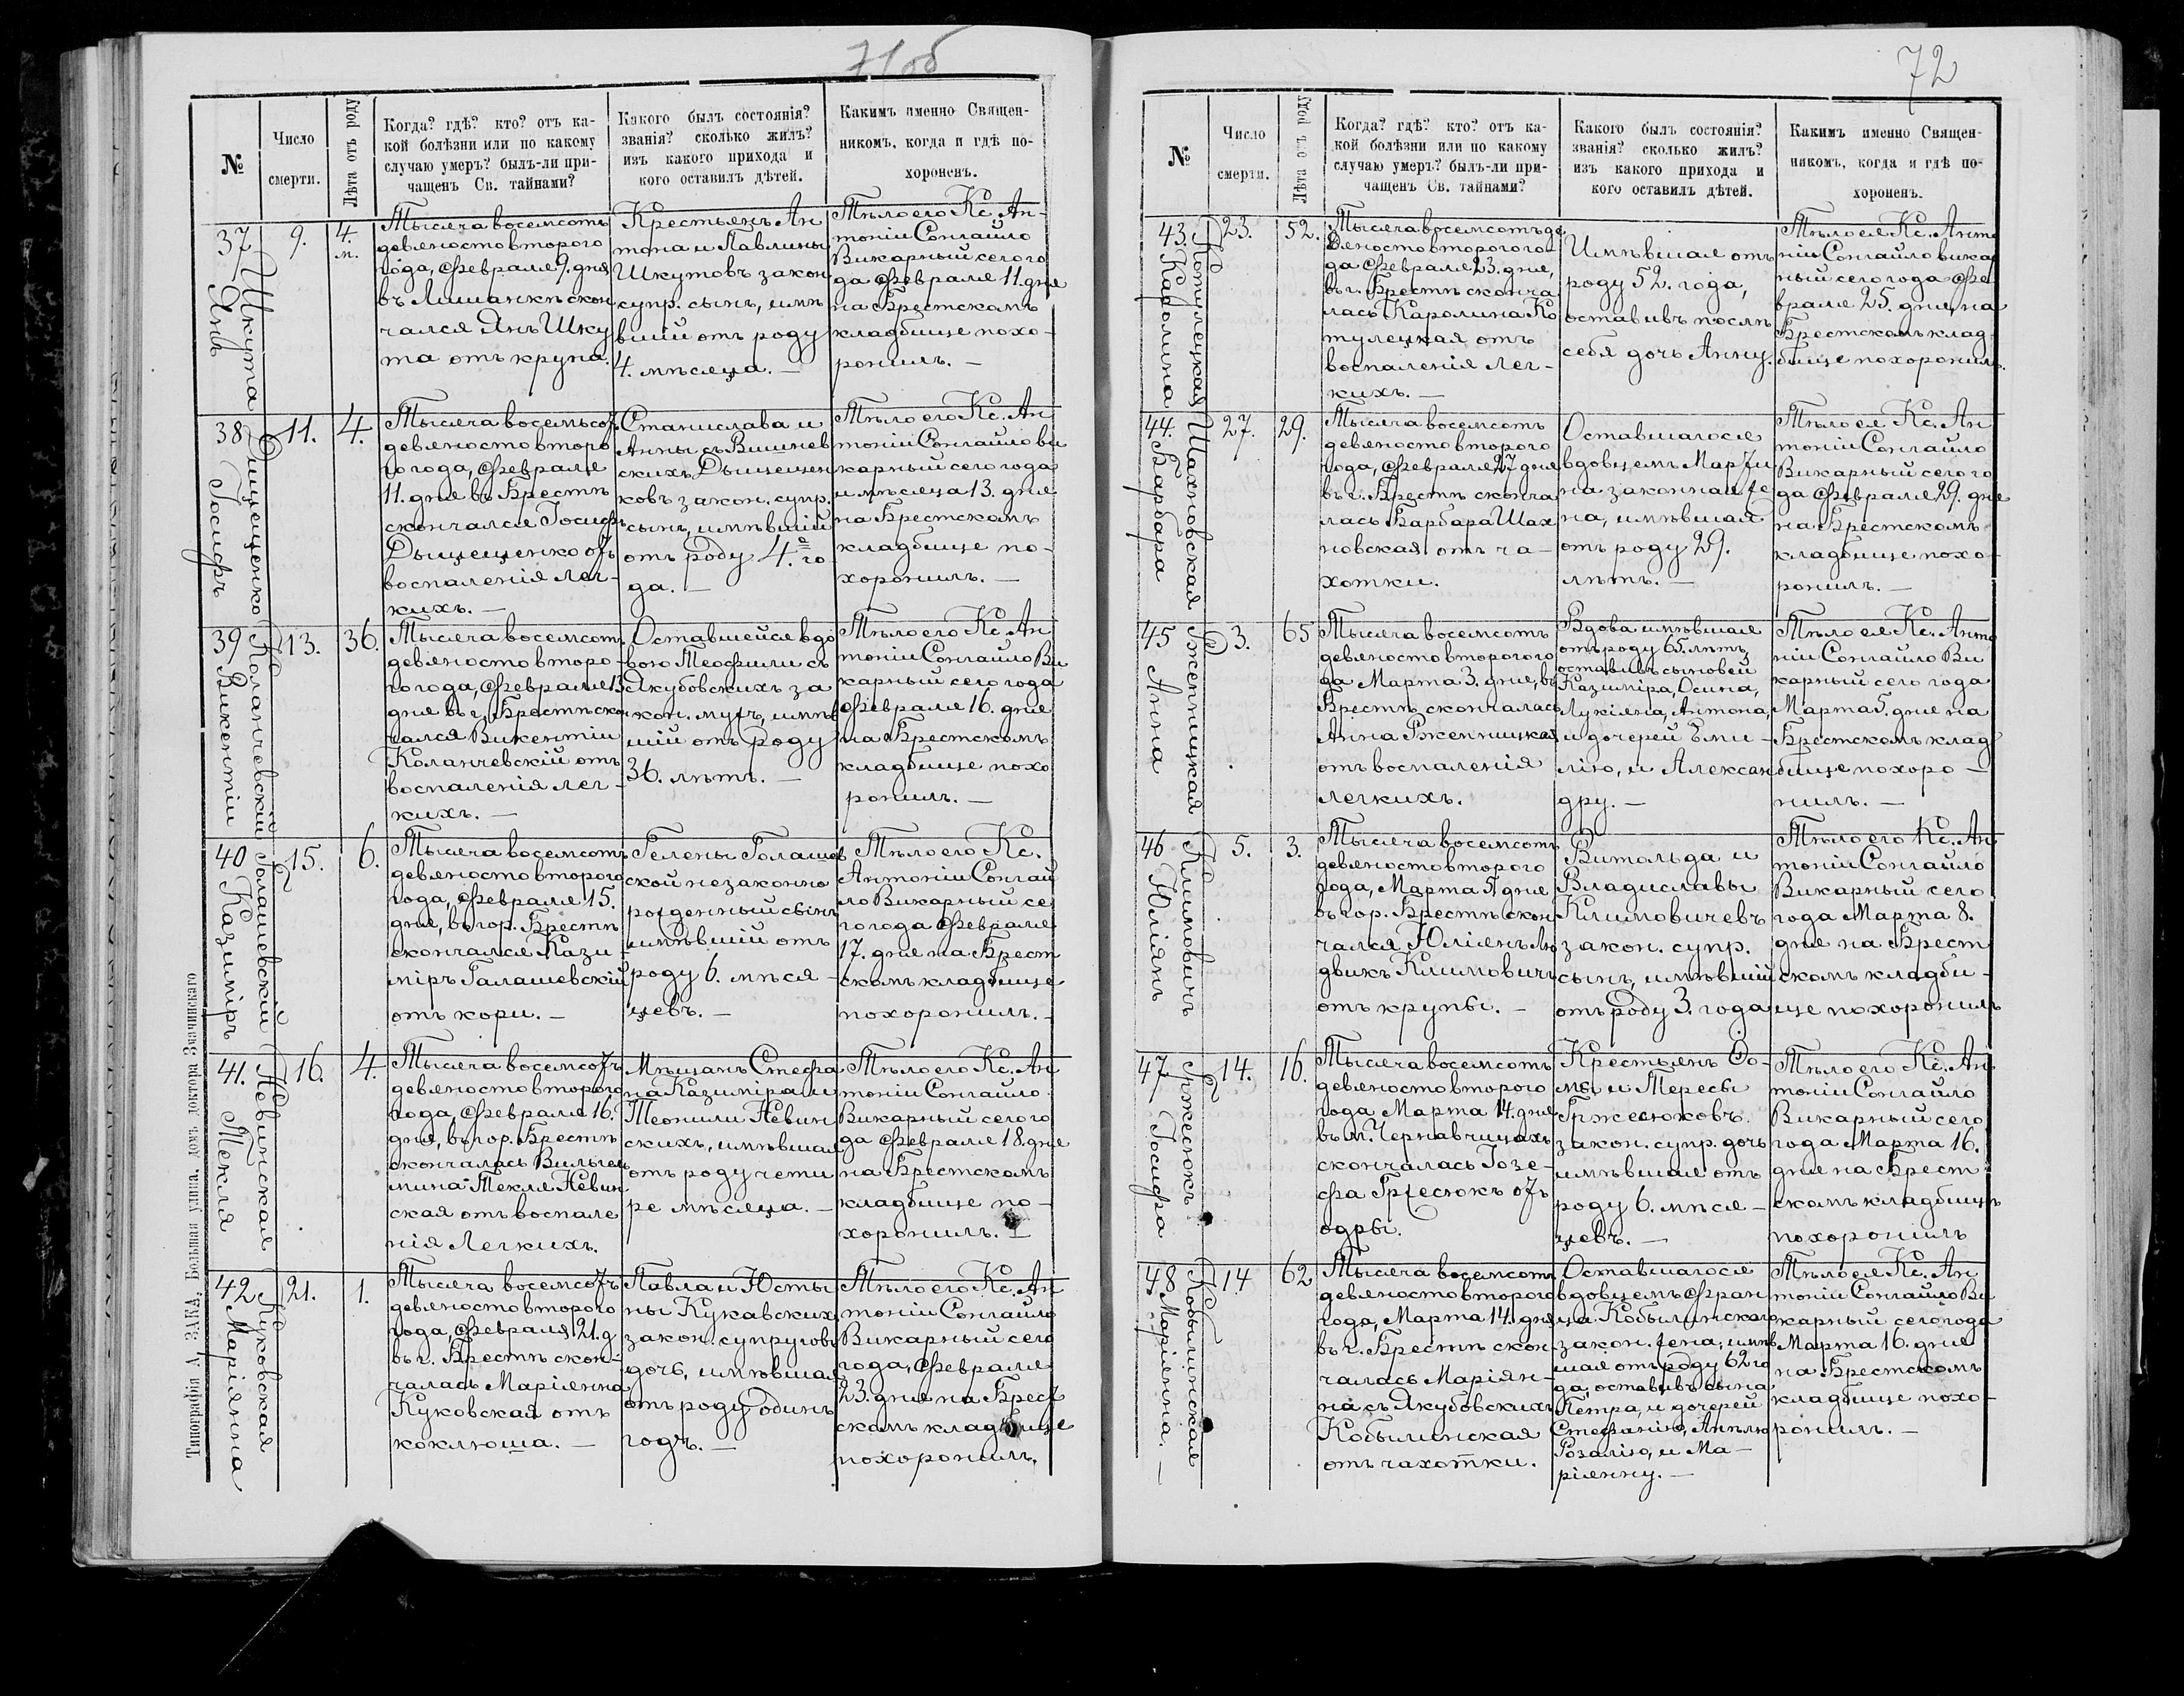 71об
№
Число
смерти.
Лѣта отъ роду
Когда? гдѣ? кто? отъ ка-
кой болѣзни или по какому
случаю умеръ? былъ-ли при-
чащенъ Св. тайнами?
Какого былъ состоянія?
званія? сколько жилъ?
изъ какого прихода и
кого оставилъ дѣтей.
Какимъ именно Священ-
никомъ, когда и гдѣ по-
хороненъ.
37
Шкута
Янъ
9.
4.
м.
Тысяча восемсотъ
девяносто второго
года, Февраля 9. дня
въ Лишанкѣ скон
чался Янъ Шку
та отъ крупа.
Крестьянъ Ан
тона и Павлины
Шкутовъ закон
супр. сынъ, имѣ
вшій отъ роду
4. мѣсяца. —
Тѣло его Кс. Ан-
тоніи Сонгайло
Викарный сего го
да Февраля 11. дня
на Брестскомъ
кладбище похо-
ронилъ. —
38
Дыщещенко
Іосифъ
11.
4.
Тысяча восемьсотъ
девяносто второ
го года, Февраля
11. дня въ Брестѣ
скончался Іосифъ
Дыщещенко отъ
воспаленія лег-
кихъ. —
Станислава и
Анны съ Вишнев
скихъ Дыщещен
ковъ закон. супр.
сынъ, имѣвшій
отъ роду 4. го
да. —
Тѣло его Кс. Ан
тоніи Сонгайло ви
карный сего года
и мѣсяца 13. дня
на Брестскомъ
кладбище по-
хоронилъ. —
39
Коланчевскій
Викентіи
13.
36.
Тысяча восемсотъ
девяносто второ-
го года, Февраля 13
дня въ г. Брестѣ скон
чался Викентіи
Коланчевскій отъ
воспаленія лег-
кихъ. —
Оставшейся вдо
вою Теофили съ
Якубовскихъ за
кон. мужъ, имѣв
шій отъ роду
36. лѣтъ. —
Тѣло его Кс. Ан
тоніи Сонгайло Ви
карный сего года
Февраля 16. дня
на Брестскомъ
кладбище похо
ронилъ. —
40
Голашевскій
Казиміръ
15.
6.
Тысяча восемсотъ
девяносто второго
года, Февраля 15.
дня, въ гор. Брестѣ
скончался Кази-
міръ Галашевскій
отъ кори. —
Гелены Голашев
ской незаконно
рожденный сынъ
имѣвшій отъ
роду 6. мѣся-
цевъ. —
Тѣло его Кс.
Антоніи Сонгай
ло Викарный се
го года Февраля
17. дня на Брест
скомъ кладбище
похоронилъ. —
41.
Невинская
Текля
16.
4.
Тысяча восемсотъ
девяносто второго
года, Февраля 16.
дня, въ гор. Брестѣ
скончалась Вильгель
мина-Текля Невин
ская отъ воспале
нія Легкихъ.
Мѣщанъ Стефа
на Казиміра и
Теонили Невин
скихъ, имѣвшая
отъ роду четы
ре мѣсяца. —
Тѣло его Кс. Ан
тоніи Сонгайло
Викарный сего го
да Февраля 18. дня
на Брестскомъ
кладбище по-
хоронилъ. —
42
Куковская
Маріянна
21.
1.
Тысяча восемсотъ
девяносто второго
года, Февраля 21. д
въ г. Брестѣ скон-
чалась Маріянна
Куковская отъ
коклюша. —
Павла и Юсты
ны Кукавскихъ
закон. супруговъ
дочь, имѣвшая
отъ роду одинъ
годъ. —
Тѣло его Кс. Ан
тоніи Сонгайло
Викарный сего
года, Февраля
23. дня на Брест
скомъ кладбище
похоронилъ.
Типографія А. ЗАКА, Большая улица, домъ доктора Значинскаго
72
№
Число
смерти.
Лѣта отъ роду
Когда? гдѣ? кто? отъ ка-
кой болѣзни или по какому
случаю умеръ? былъ-ли при-
чащенъ Св. тайнами?
Какого былъ состоянія?
званія? сколько жилъ?
изъ какого прихода и
кого оставилъ дѣтей.
Какимъ именно Священ-
никомъ, когда и гдѣ по-
хороненъ.
43.
Котулецкая
Каролина
23.
52.
Тысяча восемсотъ де
вяносто второго го
да Февраля 23. дня,
въ г. Брестѣ сконча
лась Каролина Ко
тулецкая отъ
воспаленія лег-
кихъ. —
Имѣвшая отъ
роду 52. года,
оставивъ послѣ
себя дочь Анну.
Тѣло ея Кс. Анто
ніи Сонгайло вика
ный сего года Фе
враля 25. дня, на
Брестскомъ клад
бище похоронилъ.
44.
Шахновская
Барбара
27.
29.
Тысяча восемсотъ
девяносто второго
года, Февраля 27 дня
въ г. Брестѣ сконча
лась Барбара Шах
новская отъ ча-
хотки.
Оставшагося
вдовцемъ Марти
на законная же
на, имѣвшая
отъ роду 29.
лѣтъ. —
Тѣло ея Кс. Ан
тоніи Сонгайло
Викарный сего го
да Февраля 29. дня
на Брестскомъ
кладбище похо-
ронилъ. —
45
Рженницкая
Анна
3.
65
Тысяча восемсотъ
девяносто второго го
да Марта 3. дня, въ
Брестѣ скончалась
Анна Рженницкая
отъ воспаленія
легкихъ.
Вдова имѣвшая
отъ роду 65. лѣтъ,
оставивъ сыновей
Казиміра, Осипа,
Лукіяна, Антона,
и дочерей Еми-
лію, и Алексан
дру. —
Тѣло ея Кс. Анто
ніи Сонгайло Ви
карный сего года
Марта 5. дня на
Брестскомъ клад
бище похоро-
нилъ. —
46
Климовичъ
Юліянъ
5.
3.
Тысяча восемсотъ
девяносто второго
года, Марта 5. дня
въ гор. Брестѣ скон
чался Юліянъ Лю
двикъ Климовичъ
отъ крупы. —
Витольда и
Владиславы
Климовичевъ
закон. супр.
сынъ, имѣвшій
отъ роду 3. года
Тѣло его Кс. Ан
тоніи Сонгайло
Викарный сего
года Марта 8.
дня на Брест
скомъ кладби-
ще похоронилъ
47
Гржесюкъ
Іосифа
14.
16.
Тысяча восемсотъ
девяносто второго
года Марта 14. дня
въ м. Чернавчицахъ
скончалась Іозе-
фа Гржесюкъ отъ
одры.
Крестьянъ Ѳо-
мы и Тересы
Гржесюковъ
закон. супр. дочь
имѣвшая отъ
роду 6. мѣся-
цевъ. —
Тѣло его Кс. Ан
тоніи Сонгайло
Викарный сего
года Марта 16.
дня на Брест
скомъ кладбищѣ
похоронилъ
48
Кобылинская
Маріянна. —
14
62
Тысяча восемсотъ
девяносто второго
года, Марта 14. дня
въ г. Брестѣ скон-
чалась Маріян-
на съ Якубовскихъ
Кобылинская
отъ чахотки.
Оставшагося
вдовцемъ Фран
ца Кобылинскаго
закон. жена, имѣв
шая отъ роду 62 го
да, оставивъ сына
Петра, и дочерей
Стефанію, Анѣлю
Розалію, и Ма-
ріянну. —
Тѣло ея Кс. Ан
тоніи Сонгайло Ви
карный сего года
Марта 16. дня
на Брестскомъ
кладбище похо-
ронилъ. —